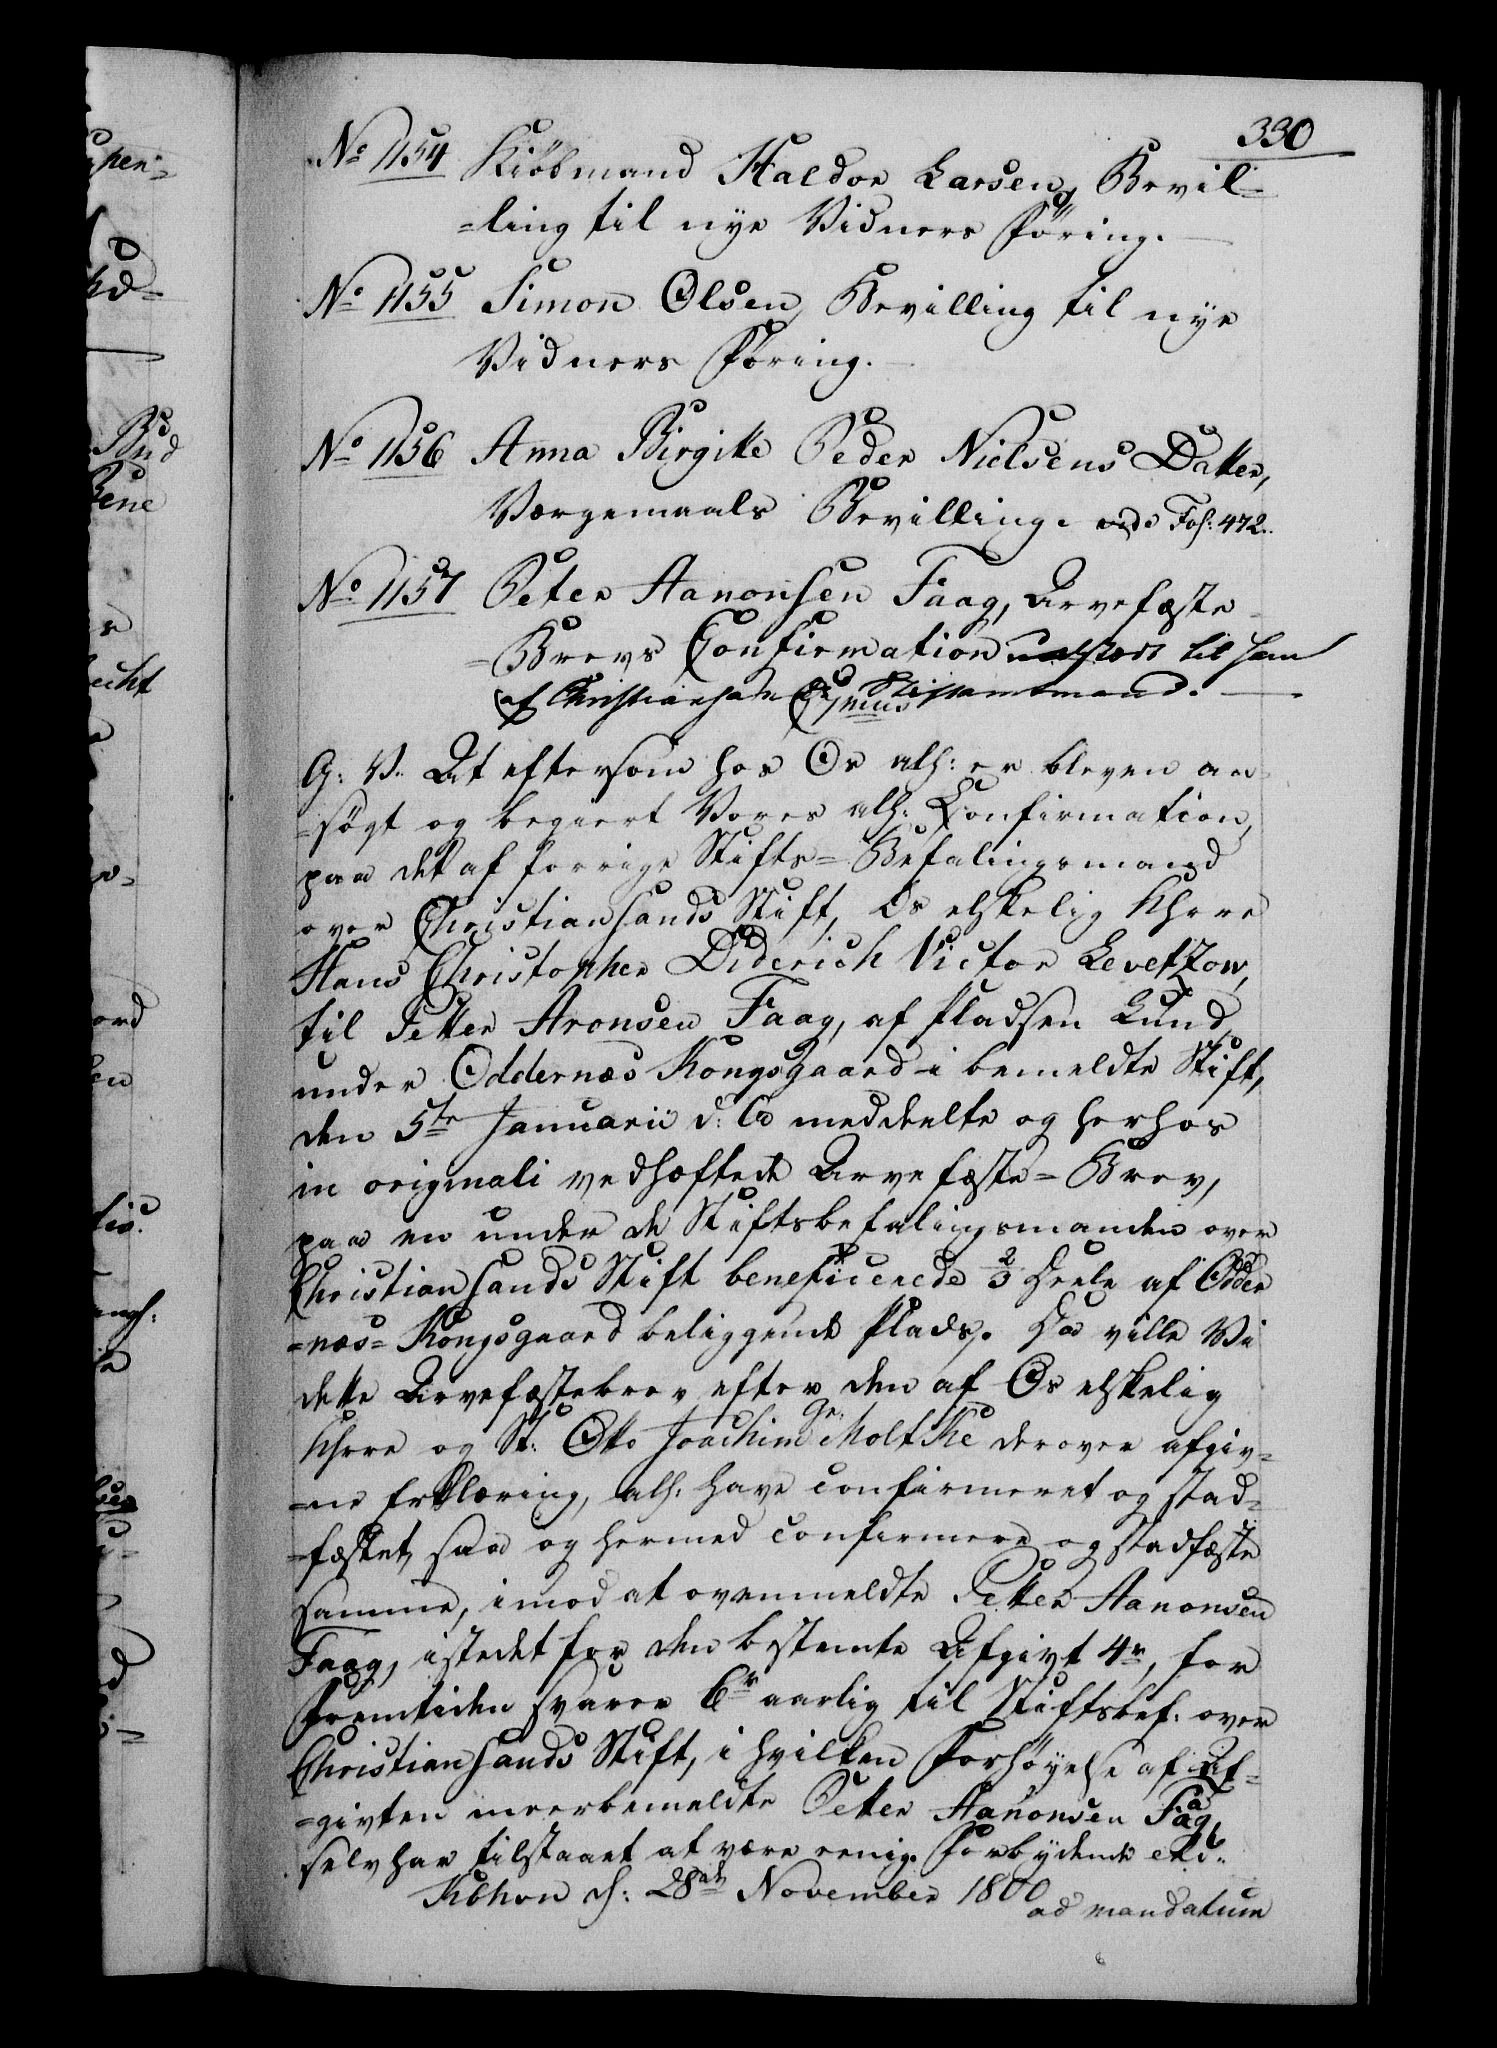 330
No 1154 Kiöbmand Haldor Larsen, Bevil-
-ling til nye Vidners Föring.
No 1155 Simon Olsen, Bevilling til nye
Vidners Föring.
No 1156 Anna Birgitte Peder Nielsens Datter,
Værgemaals Bevilling. vide Fol: 472.
No 1157 Peter Aanonsen Faag, Arvefæste-
-Brevs Confirmation udstædt til ham
af Christiansands Stiftamtmand.
G: V: At eftersom hos Os allh: er bleven an-
-søgt og begiert Vores allh: Confirmation,
paa det af forrige Stifts-Befalingsmand
over Christiansands Stift, Os elskelig Hrre
Hans Christopher Diderich Victor Levetzow,
til Petter Aronsen Faag, af Pladsen Lund,
under Oddernæs Kongsgaard i bemeldte Stift,
den 5te Januarii d: A meddeelte og herhos
in originali vedhæftede Arvefæste-Brev,
paa en under de Stiftsbefalingsmanden over
Christiansands Stift beneficerede 2/3 Deele af Odder
-næs-Kongsgaard beliggende Plads. Da ville Vi
dette Arvefæstebrev efter den af Os elskelig
Hrre og St: Otto Joachim Gr: Moltke derover afgiv-
-ne Erklæring, allh: have confirmeret og stad-
-fæstet, saa og hermed confirmere og stadfæste
samme, imod at ovenmeldte Petter Aanonsen
Faag, istedet for den bestemte Afgivt 4r, for
Fremtiden svarer 6r aarlig til Stiftsbef: over
Christiansands Stift, i hvilken Forhøyelse af Af-
-givten meerbemeldte Petter Aanonsen Faag
selv har tilstaaet at være eenig. Forbydende etc:
Kbhvn d: 28de November 1800
ad mandatum